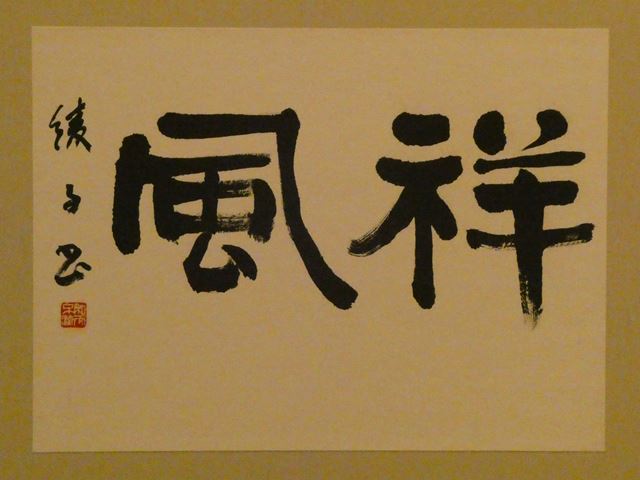 祥風
綾子書